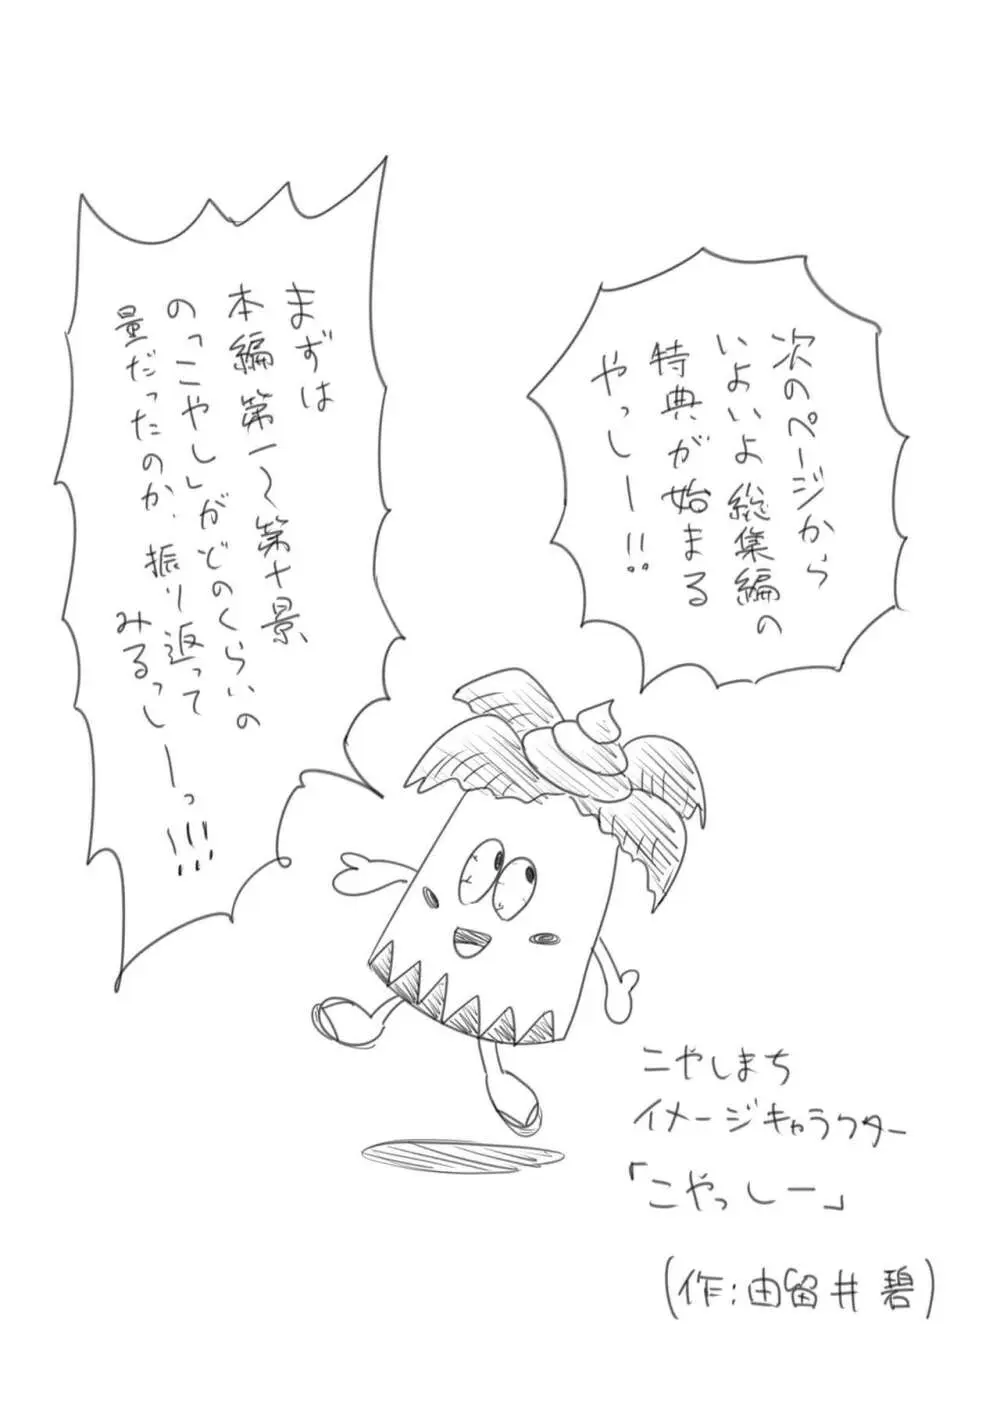 次のページから
いよいよ総集編の
特典が始まる
やっしー!!
まずは
本編第一〜第十景、
のっこやしっがどのくらいの
量だったのか、振り返って
みるっしーーっ!!!
こやしまち
イメージキャラクター
「こやっしー」
(作:由留井碧)